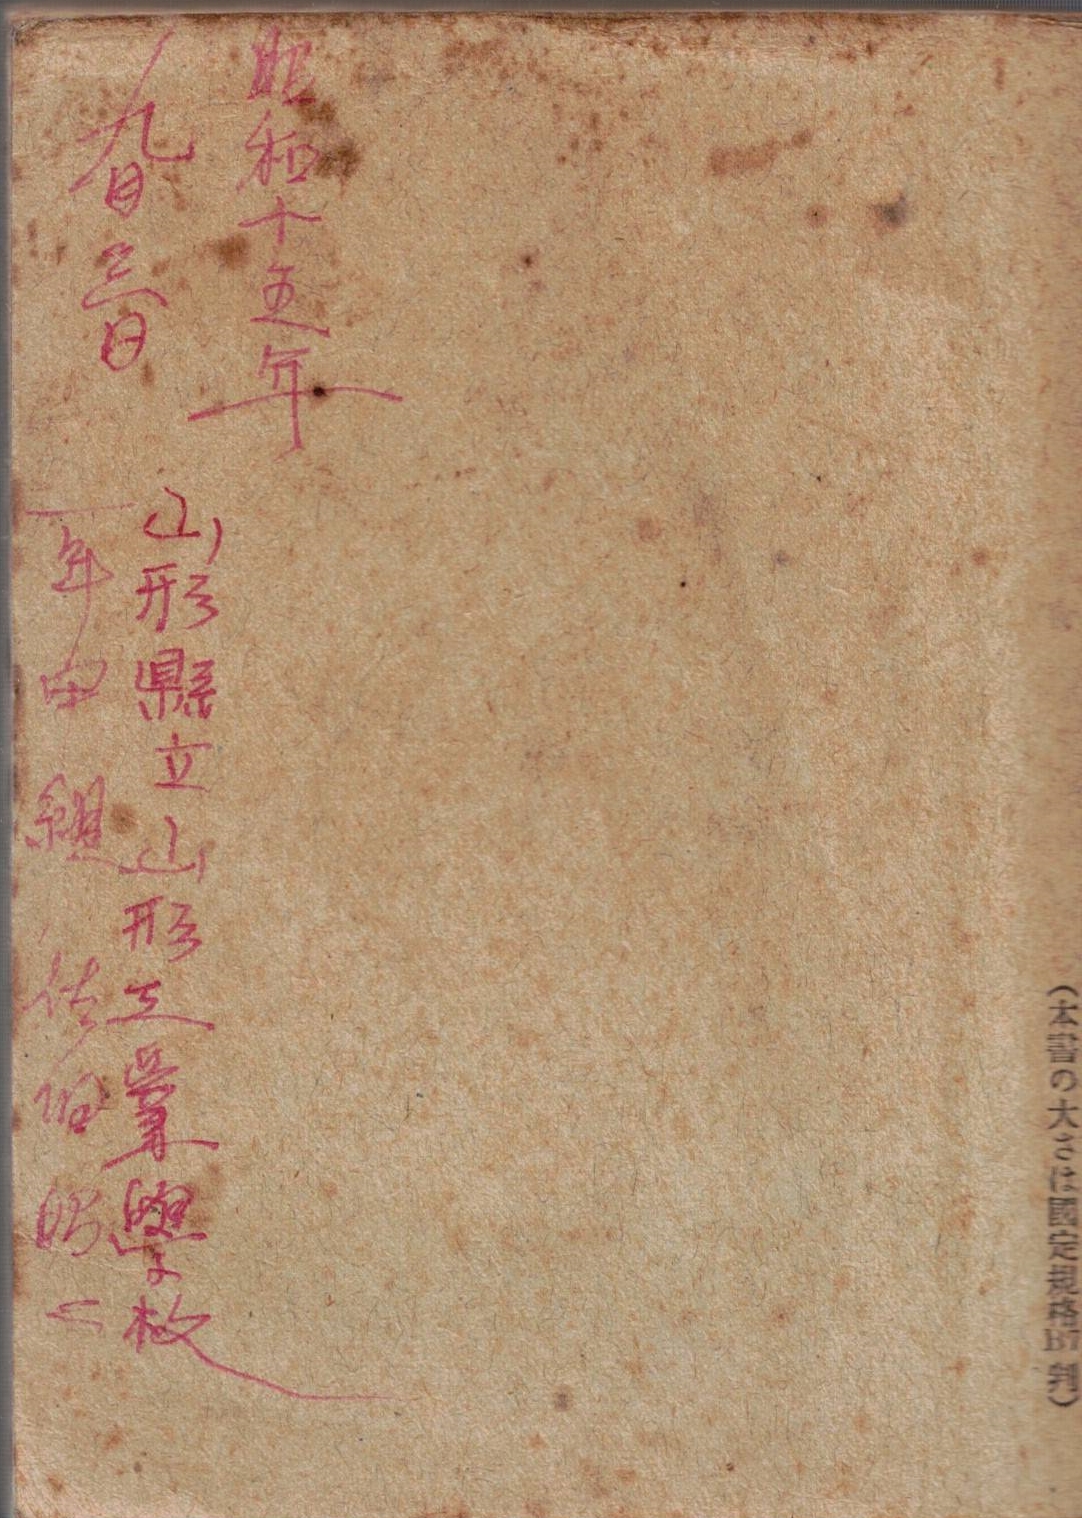 （本書の大さは國定規格B7判）
昭和十五年
九月三日
山形縣立山形工業學校
一年甲組